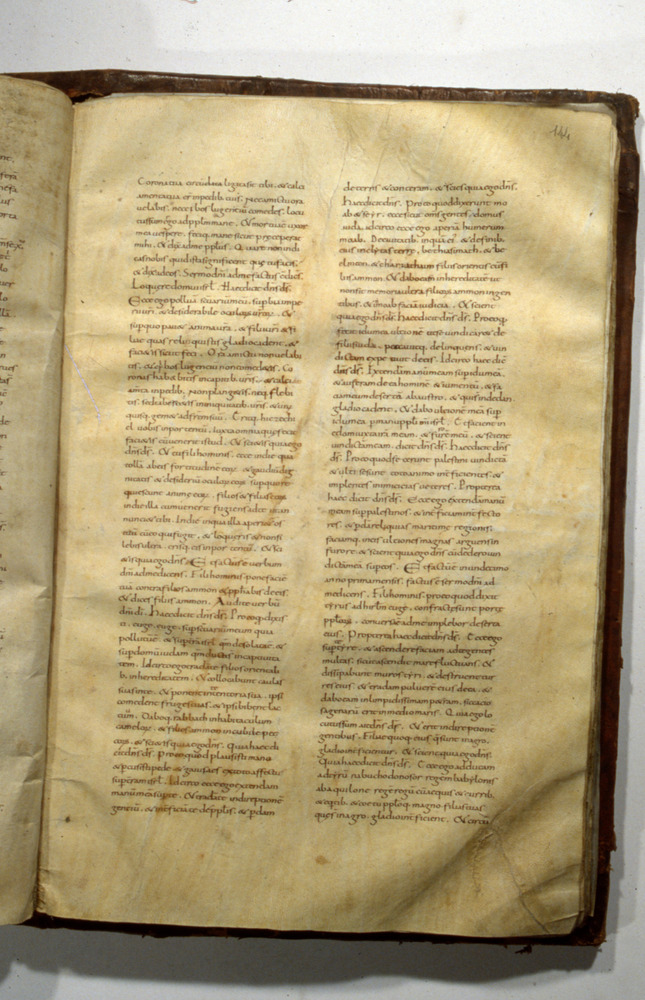 144
Corona tua circumligata sit tibi, & calci
amenta tua in pedibus tuis. Nec amictu ora
uelabis. nec cibos lugentium comedes. Locu
tus sum ergo ad pplm mane. & mortua e uxor
mea uespere. fecique mane sicut preceperat
mihi. & dix ad me ppls. Quare non indi
cas nobis quid ista significent que tu facis.
& dixi ad eos. Sermo dni ad me factus e dices.
Loquere domui isrl. Haec dicit dns ds.
Ecce ego polluam scuarium meum. supbiam impe
rii uri. & desiderabile oculorum urorum. &
sup quo pau& anima ura. & filii uri & fi
liae quas reliquistis gladio cadent. &
faci&is sicut feci. Ora amictu non uelabi
tis. & cibos lugentium non comed&is. Co
ronas habebitis in capitib uris. & calci
amta in pedib. Non plang&is. neq fleb
tis. sed tabescetis in iniquitatib uris. & unus
quisq gem& ad frem suum. Eritq hiezechi
el uobis in portentum. iuxta omnia que fecit
faci&is cum uenerit istud. & sci&is quia ego
dns ds. & tu fili hominis. ecce in die qua
tollam ab eis fortitudinem eorum. & gaudium dig
nitatis & desiderium oculorum eorum sup quo re
quiescunt anime eorum. filios & filias eorum
in die illa cum uenerit fugiens ad te ut an
nunci& tibi. In die inqua illa aperi& os
tuum cum eo qui fugit. & loqueris & non si
lebis ultra. erisq eis in portentum. & sci
&is quia ego dns. Et factus e uerbum
dni ad me dicens. Fili hominis pone facie
tuam contra filios ammon & pph&abis de eis.
& dices filiis ammon. Audite uerbum
dni di. Haec dicit dns ds. Pro eo qd dixis
ti. euge. euge. sup scuarium meum quia
pollutum e. & sup terra isrl. qm desolata e. &
sup domum iuda. qm ducti st in captiuita
tem. Idcirco ego tradam te filiis orientali
b. in hereditatem. & collocabunt caulas
suas in te. & ponent in te tentoria sua. ipsi
comedent fruges tuas. & ipsi bibent lac
tuum. Daboq rabbath in habitaculum
camelorum. & filios ammon in cubile pe
corum. & sci&is quia ego dns. Quia haec di
cit dns ds. Pro eo quod plausisti manu
& pcussisti pede. & gauisa es ex toto affectu
sup terram isrl. Idcirco ecce ego extendam
manum meam sup te. & tradam te in direptione
gentium. & interficiam te de pplis. & pdam
de terris & conteram. & scies quia ego dns.
Haec dicit dns ds. Pro eo quod dixerunt mo
ab & seyr. ecce sicut oms gentes. domus
iuda. idcirco ecce ego aperiam humerum
moab. De ciuitatib inquam ei & de finib
eius inclytas terre, bethiasimoth. & be
elmeon. & chariathaim filiis orientis cum fi
liis ammon. & dabo eam in hereditate ut
non sit memoria ultra filiorum ammon in gen
tibus. & in moab faciam iudicia. & scient
quia ego dns ds. Haec dicit dns ds. Pro eo qd
fecit idumea ultionem ut se uindicar& de
filiis iuda. peccauitq delinquens. & uin
dictam expetiuit de eis. Idcirco haec dic
dns ds. Extendam manum meam sup idumea
& auferam de ea hominem & iumentum. & fa
ciam eam desertam ab austro. & qui st in dedan
gladio cadent. & dabo ultionem mea sup
idumea p manu ppli mi isrl. & facient in
edom iuxta iram meam. & furorem meum. & scient
uindictam meam. dicit dns ds. Haec dicit dns
ds. Pro eo quod fecerunt palestini uindicta
& ulti se sunt toto animo interficientes. &
implentes inimicicias ueteres. Propterea
haec dicit dns ds. Ecce ego extendam manu
meam sup palestinos. & interficiam interfecto
res. & pdam reliquias maritime regionis.
faciamq in eis ultiones magnas arguens in
furore. & scient quia ego dns cu dedero uin
dictam meam sup eos. Et factum e in undecimo
anno prima mensis. factus e sermo dni ad
me dicens. Fili hominis. pro eo quod dixit
tyrus ad hierlm euge. confracte sunt porte
pplorum. conuersa e ad me implebor. deserta
est. Propterea haec dicit dns ds. Ecce ego
sup te tyre. & ascendere faciam ad te gentes
multas. sicut ascendit mare fluctuans. &
dissipabunt muros tyri. & destruent tur
res eius. & radam puluerem eius de ea. &
dabo eam in limpidissimam p&ram. siccatio
sagenarum erit in medio maris. Quia ego lo
cutus sum ait dns ds. & erit in direptione
gentibus. Filie quoq eius q sunt in agro.
gladio interficientur. & scient quia ego dns.
Quia haec dicit dns ds. Ecce ego adducam
ad tyrum nabuchodonosor regem babylonis
ab aquilone regem regum cum equis & curribus.
& equitib. & coetu pploq magno. filias tuas
que st in agro. gladio interficient. & circu